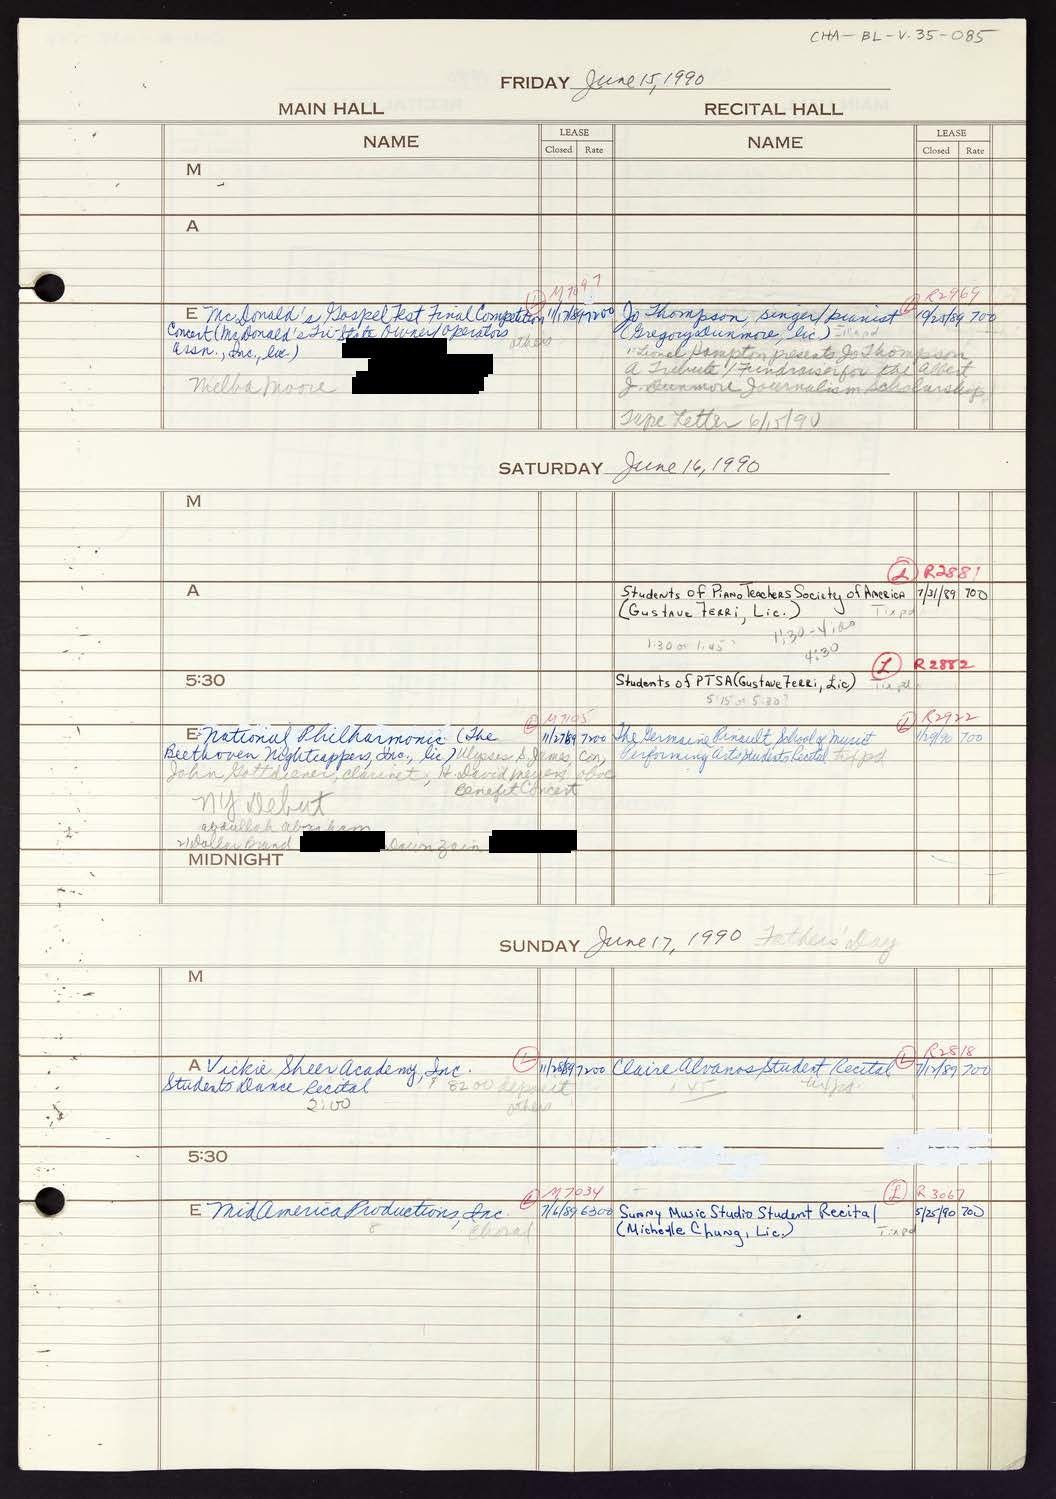 CHA-BL-V.35-085
FRIDAY June 15, 1990
MAIN HALL
RECITAL HALL
NAME
LEASE
Closed Rate
NAME
LEASE
Closed Rate
M
A
L M7097
L R2969
E McDonald's GospelFest Final Competition 11/17/89 7200
Concert (McDonald's Tri-State Owner/Operators
Assn., Inc., Lic.)
others
Melba Moore
Jo Thompson, singer/pianist 10/25/89 700
(Gregory Dunmore, Lic.) Tixpd
"Lionel Hampton presents Jo Thompson,
A Tribute"/Fundraiser for the Albert
J. Dunmore Journalism Scholarship
Tape Letter 6/15/90
SATURDAY June 16, 1990
M
L R2881
A
Students of Piano Teachers Society of America 7/31/89 700
(Gustave Ferri, Lic.) Tixpd
1:30-4:00
1:30 or 1:45?
4:30
L R2882
5:30
Students of PTSA (Gustave Ferri, Lic) Tixpd
5:15 or 5:30?
L M7105
L R2922
E National Philharmonic (The 11/27/89 7200
Beethoven Nightcappers, Inc., Lic) Ulysses S. James, Con,
John Gottdiener, clarinet, H. David Meyers oboe
Benefit Concert
NY Debut
abdullah abraham
Dollar Brand
The Germaine Pinault School of Music 1/29/90 700
Performing Arts Students Recital tixpd
MIDNIGHT
SUNDAY June 17, 1990 Fathers' Day
M
L
L R2818
A Vickie Sheer Academy, Inc. 11/28/89 7200
Students Dance Recital 8200 deposit
2:00
others
Claire Alvanos Student Recital 7/12/89 700
1:45 tixpd
5:30
L M7034
L R3067
E MidAmerica Productions, Inc. 7/6/89 6300
8 Choral
Sunny Music Studio Student Recital 5/25/90 700
(Michelle Chung, Lic.) Tixpd